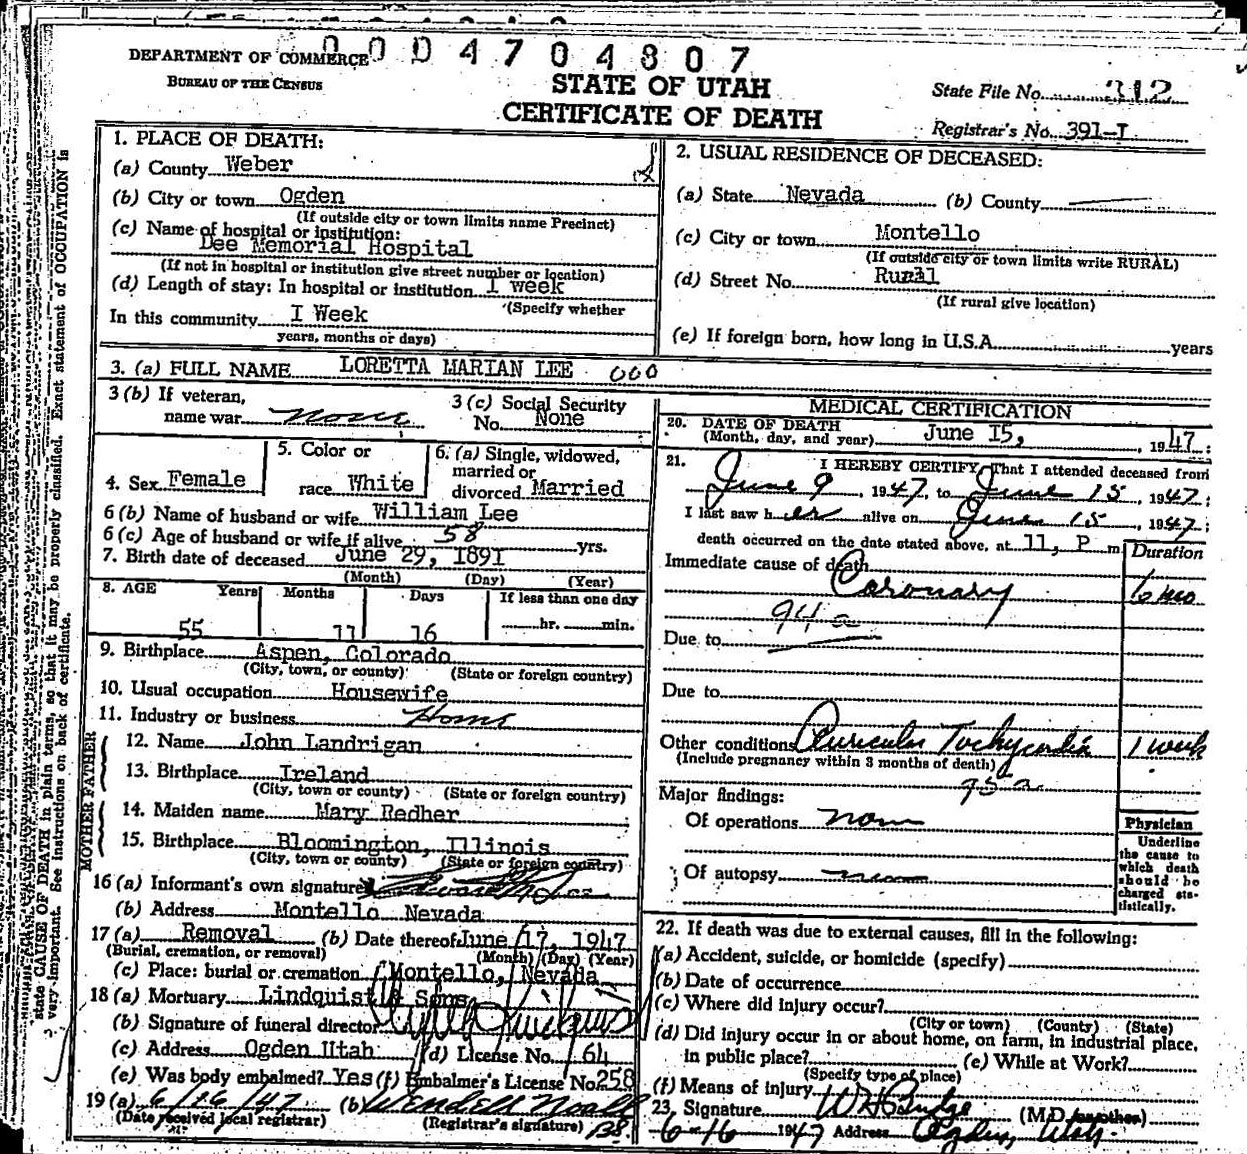 0004704807
DEPARTMENT OF COMMERCE
BUREAU OF THE CENSUS
STATE OF UTAH
CERTIFICATE OF DEATH
State File No. 312
Registrar's No. 391-I
1. PLACE OF DEATH:
(a) County Weber
(b) City or town Ogden
(If outside city or town limits name Precinct)
(c) Name of hospital or institution:
Dee Memorial Hospital
(If not in hospital or institution give street number or location)
(d) Length of stay: In hospital or institution I week
(Specify whether
In this community I Week
years, months or days)
2. USUAL RESIDENCE OF DECEASED:
(a) State Nevada (b) County
(c) City or town Montello
(If outside city or town limits write RURAL)
(d) Street No. Rural
(If rural give location)
(e) If foreign born, how long in U.S.A. years
3. (a) FULL NAME LORETTA MARIAN LEE 000
3 (b) If veteran,
name war none
3 (c) Social Security
No. None
4. Sex Female
5. Color or
race White
6. (a) Single, widowed,
married or
divorced Married
6 (b) Name of husband or wife William Lee
6 (c) Age of husband or wife if alive 58 yrs.
7. Birth date of deceased June 29, 1891
(Month) (Day) (Year)
8. AGE Years Months Days If less than one day
55 11 16 hr. min.
9. Birthplace Aspen, Colorado
(City, town, or county) (State or foreign country)
10. Usual occupation Housewife
11. Industry or business Home
FATHER
12. Name John Landrigan
13. Birthplace Ireland
(City, town or county) (State or foreign country)
MOTHER
14. Maiden name Mary Redher
15. Birthplace Bloomington, Illinois
(City, town or county) (State or foreign country)
16 (a) Informant's own signature
(b) Address Montello Nevada
17 (a) Removal (b) Date thereof June 17, 1947
(Burial, cremation, or removal) (Month) (Day) (Year)
(c) Place: burial or cremation Montello, Nevada
18 (a) Mortuary Lindquist & Sons
(b) Signature of funeral director
(c) Address Ogden Utah (d) License No. 64
(e) Was body embalmed? Yes (f) Embalmer's License No. 258
19 (a) 6/16/47 (b) Wendell Noall
(Date received local registrar) (Registrar's signature) BS.
MEDICAL CERTIFICATION
20. DATE OF DEATH
(Month, day, and year) June I5, , 1947;
21. I HEREBY CERTIFY, That I attended deceased from
June 9, 1947, to June 15, 1947;
I last saw her alive on June 15, 1947;
death occurred on the date stated above, at 11, P m
Duration
Immediate cause of death
Coronary 6 mo
94a
Due to
Due to
Other conditions Auricular Tachycardia 1 week
(Include pregnancy within 3 months of death)
95a
Major findings:
Of operations none
Of autopsy none
Physician
Underline
the cause to
which death
should be
charged sta-
tistically.
22. If death was due to external causes, fill in the following:
(a) Accident, suicide, or homicide (specify)
(b) Date of occurrence
(c) Where did injury occur?
(City or town) (County) (State)
(d) Did injury occur in or about home, on farm, in industrial place,
in public place? (e) While at Work?
(Specify type of place)
(f) Means of injury
23. Signature (M.D. or other)
6-16 1947 Address Ogden, Utah.
state CAUSE OF DEATH in plain terms, so that it may be properly classified. Exact statement of OCCUPATION is
very important. See instructions on back of certificate.